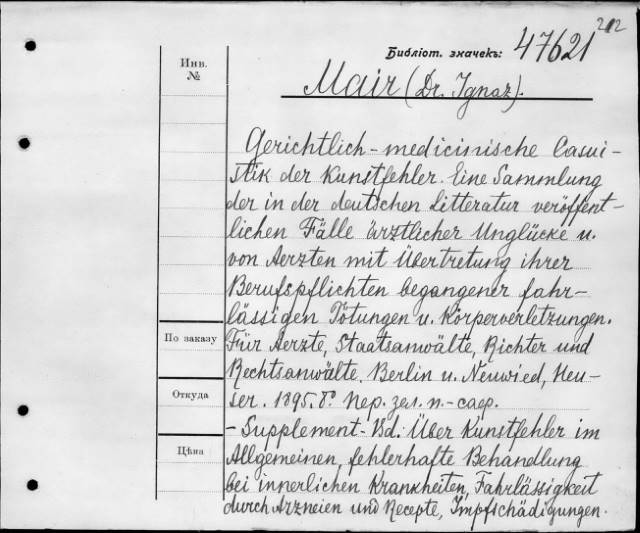 212
Библіот. значекъ: 47621
Инв.
№
Mair (Dr. Ignaz).
Gerichtlich-medicinische Casui-
stik der Kunstfehler. Eine Sammlung
der in der deutschen Litteratur veröffent-
lichen Fälle ärztlicher Unglücke u.
von Aerzten mit Übertretung ihrer
Berufspflichten begangener fahr-
lässigen Tötungen u. Körperverletzungen.
По заказу
Für Aerzte, Staatsanwälte, Richter und
Rechtsanwälte. Berlin u. Neuwied, Heu-
Откуда
ser. 1895. 8° Пер. зел. п.-саф.
- Supplement-Bd.: Über Kunstfehler im
Цѣна
Allgemeinen, fehlerhafte Behandlung
bei innerlichen Krankheiten, Fahrlässigkeit
durch Arzneien und Recepte, Impfschädigungen.